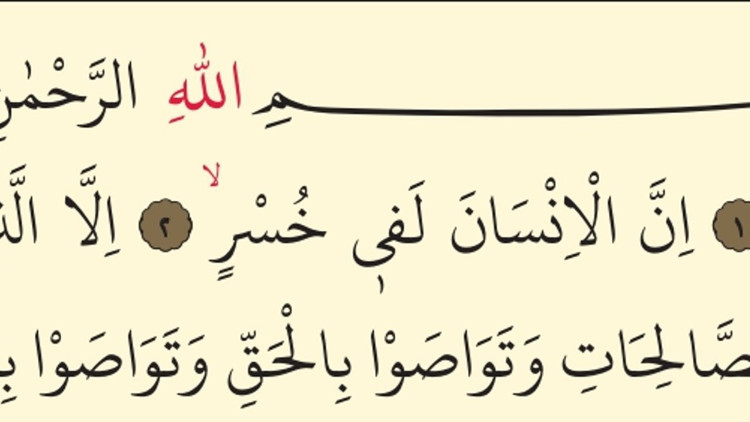 ـمِ اللّٰهِ الرَّحْمٰنِ
١ اِنَّ الْاِنْسَانَ لَفٖي خُسْرٍۙ ٢ اِلَّا الَّذ
صَّالِحَاتِ وَتَوَاصَوْا بِالْحَقِّ وَتَوَاصَوْا بِ